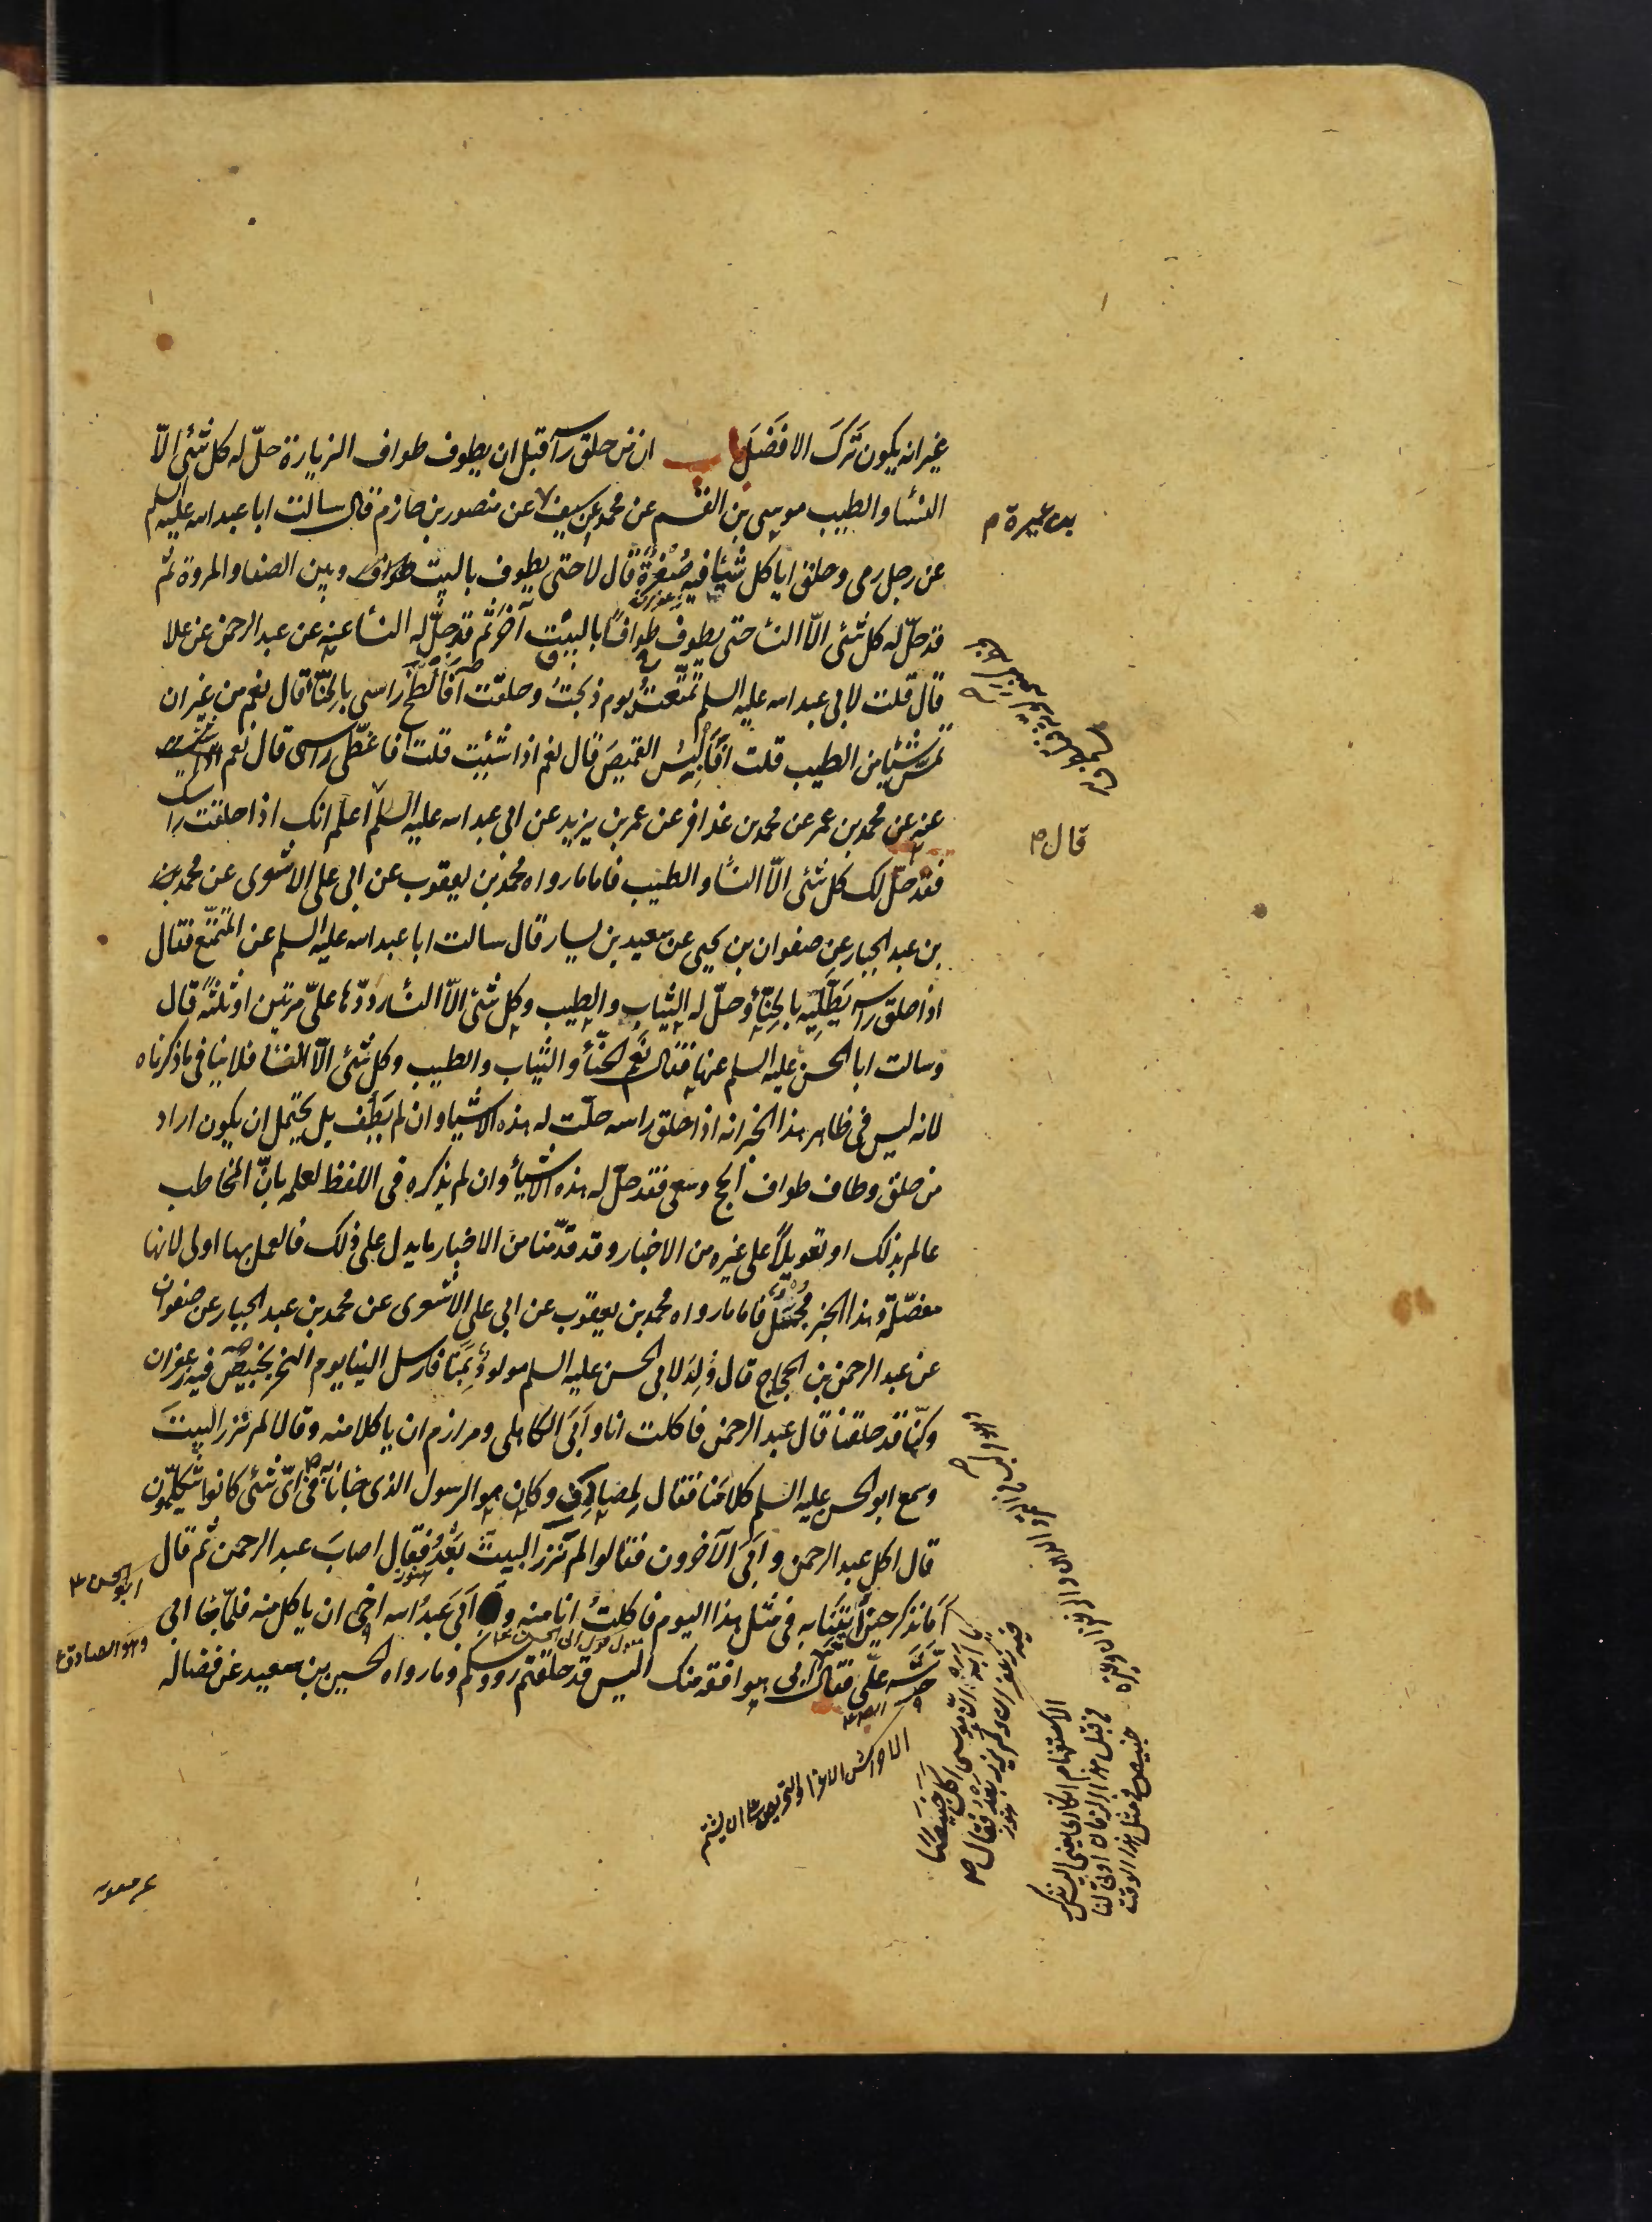 غير انه يكون ترك الافضل باب ان من حلق راسه قبل ان يطوف طواف الزيارة حلّ له كل شئ الّا
النسا والطيب موسى بن القسم عن محمد عن سيف عن منصور بن حازم قال سالت ابا عبد الله عليه السلم
عن رجل رمى وحلق ايا كل شيئا فيه صُفْرَة قال لا حتى يطوف بالبيت وبين الصفا والمروة ثم
قد حلّ له كل شئ الّا النسا حتى يطوف طوافًا بالبيت آخر ثم قد حلّ له النسا عنه عن عبد الرحمن عن علا
قال قلت لابى عبد الله عليه السلم تمتّعتُ يوم ذبحتُ وحلقت أفألطخ راسى بالحنّا قال نعم من غير ان
تمسّ شيئا من الطيب قلت افألبس القميص قال نعم اذا شئت قلت فاغطّى راسى قال نعم
عنه عن محمد بن عمر عن محمد بن عذافر عن عمر بن يزيد عن ابى عبد الله عليه السلم اعلم انك اذا حلقت راسك
فقد حلّ لك كل شئ الّا النسا والطيب فاما ما رواه محمد بن يعقوب عن ابى على الاشعرى عن محمد بن
بن عبد الجبار عن صفوان بن يحيى عن سعيد بن يسار قال سالت ابا عبد الله عليه السلم عن المتمتّع فقال
اذا حلق راسه يَطّلِيه بالحنّا وحلّ له الثياب والطيب وكل شئ الّا النسا ردّدها علىّ مرتين او ثلثة قال
وسالت ابا الحسن عليه السلم عنها فقال نعم الحنّا والثياب والطيب وكل شئ الّا النسا فلا ينافى ما ذكرناه
لانه ليس فى ظاهر هذا الخبر انه اذا حلق راسه حلّت له هذه الاشيا وان لم يَطُف بل يحتمل ان يكون اراد
من حلق وطاف طواف الحج وسعى فقد حلّ له هذه الاشيا وان لم يذكره فى اللفظ لعلمه بانّ المخاطب
عالم بذلك او تعويلًا على غيره من الاخبار وقد قدّمنا من الاخبار ما يدل على ذلك فالعمل بها اولى لانها
مفصّلة وهذا الخبر مُجمَل فاما ما رواه محمد بن يعقوب عن ابى على الاشعرى عن محمد بن عبد الجبار عن صفوان
عن عبد الرحمن بن الحجاج قال وُلِدَ لابى الحسن عليه السلم مولود بمنا فارسل الينا يوم النحر بخبيص فيه زعفران
وكنّا قد حلقنا قال عبد الرحمن فاكلت انا وابَى الكاهلى ومرازم ان ياكلا منه وقالا لم نزر البيت
وسمع ابو الحسن عليه السلم كلامنا فقال لمصادف وكان هو الرسول الذى جانا به فى اىّ شئ كانوا يتكلّمون
قال اكل عبد الرحمن وابى الآخرون فقالوا لم نزر البيت بَعْدُ فقال اصاب عبد الرحمن ثم قال
أما تذكر حين أتينا به فى مثل هذا اليوم فاكلتُ انا منه وابى عبد الله اخى ان ياكل منه فلمّا جا ابى
حرّشه علىّ فقال ابى هو افقه منك اليس قد حلقتم رؤوسكم وما رواه الحسين بن سعيد عن فضاله
بن عميرة م
قال ص
ابو الحسن ع
وهو الصادق ع
الاستفهام انكارى يعنى
فى قبل هذا الزمان
خبيص فى مثل هذا الوقت
عن معويه